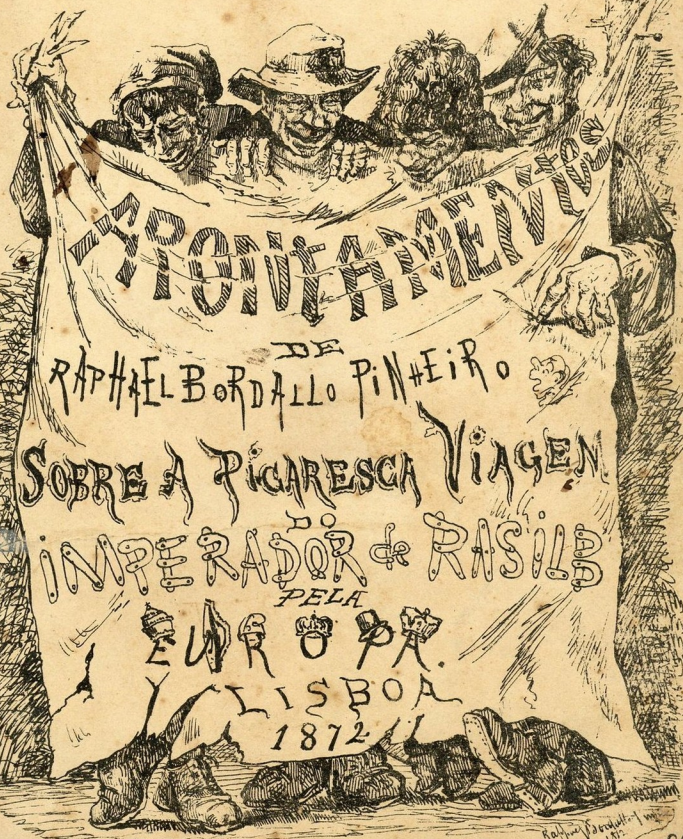 APONTAMENTOS
DE
RAPHAEL BORDALLO PINHEIRO
SOBRE A PICARESCA VIAGEM
DO
IMPERADOR de RASILB
PELA
EUROPA.
LISBOA
1872